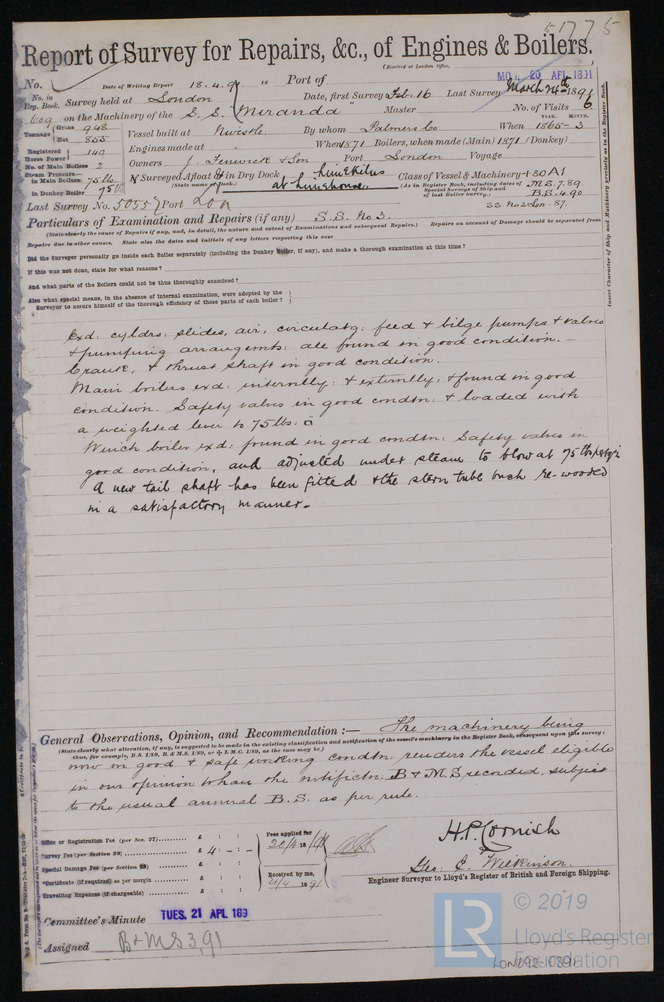 51775
Report of Survey for Repairs, &c., of Engines & Boilers.
(Received at London Office,
No. Date of Writing Report 18.4.91 18 Port of MON. 20 APL 1891
No. in Reg. Book. Survey held at London Date, first Survey Feb. 16 Last Survey March 24th 1891
609 on the Machinery of the S. S. "Miranda" Master No. of Visits 6
Tonnage Gross 948 Net 855 Vessel built at Nwcstle By whom Palmers Co When 1865-3 YEAR. MONTH.
Registered Horse Power 140 Engines made at When 1871 Boilers, when made (Main) 1871 (Donkey)
No. of Main Boilers 2 Owners J. Fenwick & Son Port London Voyage
Steam Pressure— in Main Boilers 75 lbs If Surveyed Afloat & in Dry Dock Limekilns Class of Vessel & Machinery +80A1
in Donkey Boiler 75 (State name of Dock.) at Limehouse. (As in Register Book, including dates of Special Surveys of Ship and of last Boiler Survey.) M.S. 7.89
B.S. 4.90
Last Survey No. 50557 Port Lon SS. No 2 Lon-87.
Particulars of Examination and Repairs (if any) S.S. No 3. Repairs on account of Damage should be separated from
(State clearly the cause of Repairs if any, and, in detail, the nature and extent of Examinations and subsequent Repairs.)
Repairs due to other causes. State also the dates and initials of any letters respecting this case
Did the Surveyor personally go inside each Boiler separately (including the Donkey Boiler, if any), and make a thorough examination at this time?
If this was not done, state for what reasons?
And what parts of the Boilers could not be thus thoroughly examined?
Also what special means, in the absence of internal examination, were adopted by the
Surveyor to assure himself of the thorough efficiency of those parts of each boiler?
Exd: cyldrs: slides, air, circulatg: feed & bilge pumps & valves
& pumping arrangemts: all found in good condition. –
Crank, & thrust shaft in good condition.
Main boilers exd: internlly: & externlly: & found in good
condition. Safety valves in good condtn: & loaded with
a weighted lever to 75 lbs. □"
Winch boiler exd: found in good condtn: Safety valves in
good condition, and adjusted under steam to blow at 75 lbs per sq. in
A new tail shaft has been fitted & the stern tube bush re-wooded
in a satisfactory manner.
General Observations, Opinion, and Recommendation:— The machinery being
(State clearly what alteration, if any, is suggested to be made in the existing classification and notification of the vessel's machinery in the Register Book, consequent upon this survey:
thus, for example, B.S. 1/89, B. & M.S. 1/89, or ✠ L.M.C. 1/89, as the case may be.)
now in good & safe working condtn: renders the vessel eligible
in our opinion to have the notifictn: B & M.S recorded, subject
to the usual annual B.S. as per rule.
Office or Registration Fee (per Sec. 27) £ : :
Survey Fee (per Section 28) £ 4 : - : -
Special Damage Fee (per Section 28) £ : :
*Certificate (if required) as per margin £ : :
Travelling Expenses (if chargeable) £ : :
Fees applied for
20/4 18 /91
Received by me,
21/4 18 91
H.P. Cornish
Geo. E. Wilkinson.
Engineer Surveyor to Lloyd's Register of British and Foreign Shipping.
Committee's Minute TUES. 21 APL 189
Assigned B & MS 3,91
Insert Character of Ship and Machinery precisely as in the Register Book.
LR
© 2019
Lloyd's Register
Foundation
LON092-0391